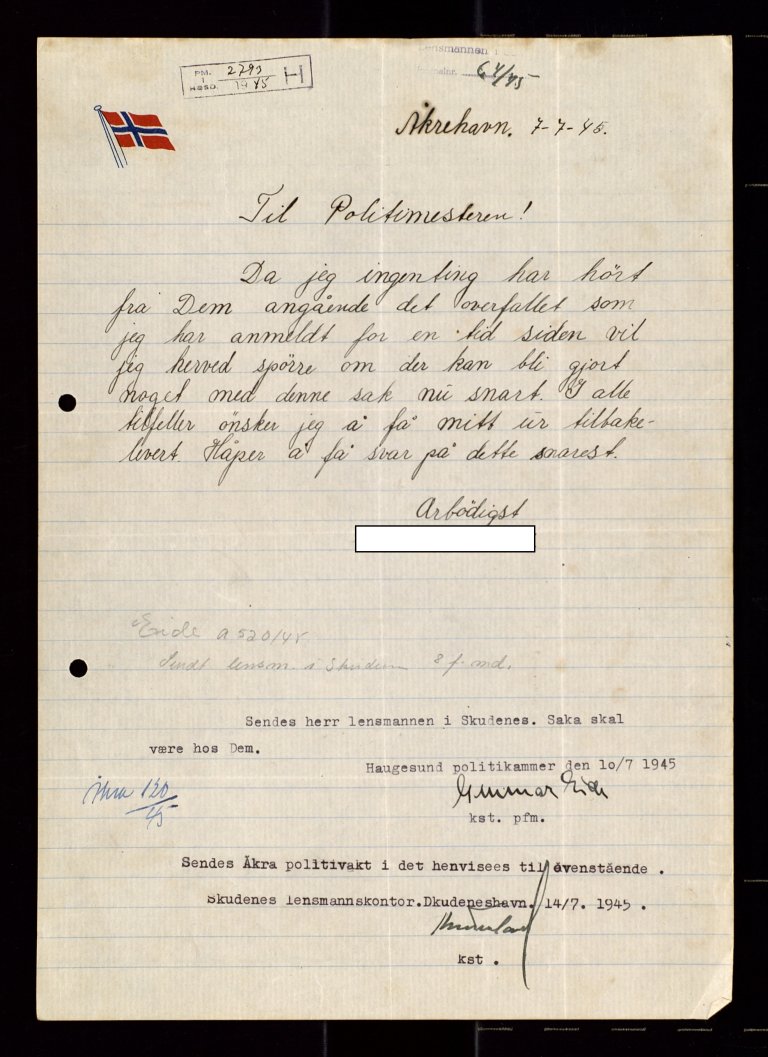 PM.
I
HGSD.
2793
1945
H
Lensmannen i
64/45
Åkrehavn. 7-7-45.
Til Politimesteren!
Da jeg ingenting har hört
fra Dem angående det overfallet som
jeg har anmeldt for en tid siden vil
jeg herved spörre om der kan bli gjort
noget med denne sak nu snart. I alle
tilfeller önsker jeg å få mitt ur tilbake-
levert. Håper å få svar på dette snarest.
Arbödigst
Eide a 520/45
Sendt lensm. i Skudenes 8 f. md.
Sendes herr lensmannen i Skudenes. Saka skal
være hos Dem.
Haugesund politikammer den 10/7 1945
Gunnar Eide
kst. pfm.
120
45
Sendes Åkra politivakt i det henvisees til ovenstående .
Skudenes lensmannskontor.Dkudeneshavn. 14/7. 1945 .
kst .